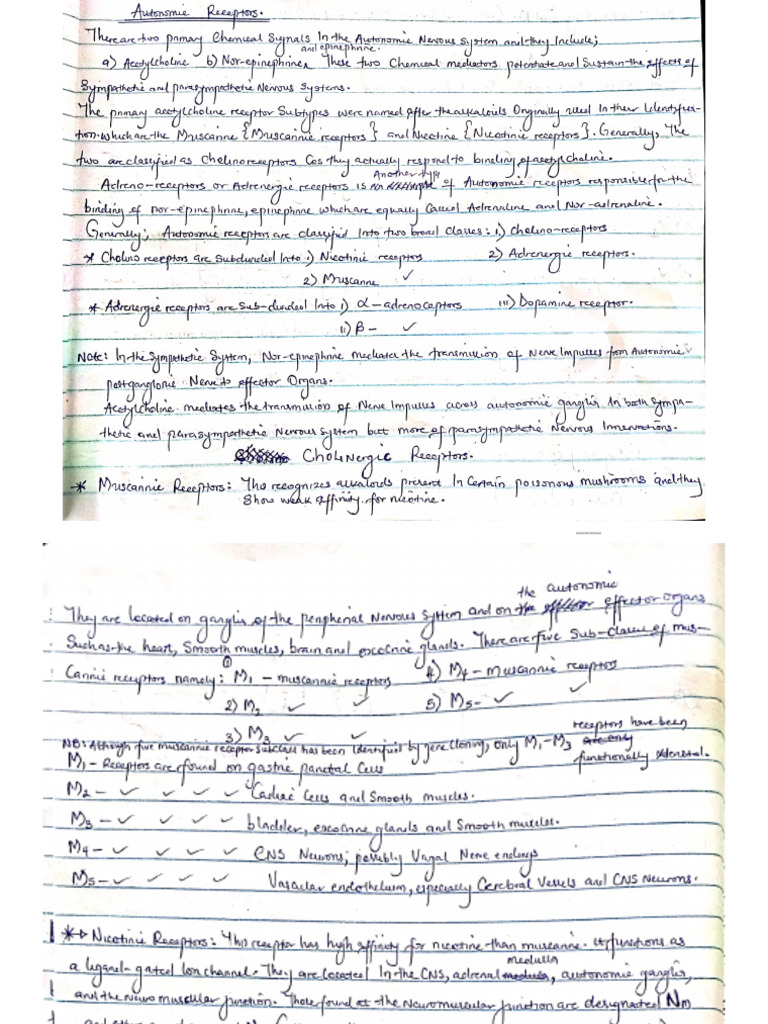 Autonomic Receptors.
There are two primary Chemical Signals In the Autonomic Nervous System and they Include;
a) Acetylcholine b) Nor-epinephrine and epinephrine. These two Chemical mediators potentiate and Sustain the effects of
Sympathetic and parasympathetic Nervous Systems.
The primary acetylcholine receptor Subtypes were named after the alkaloids Originally used In their Identifica-
tion which are the Muscarine {Muscarinic receptors} and Nicotine {Nicotinic receptors}. Generally, The
two are classified as Cholinoreceptors Cos they actually respond to binding of acetylcholine.
Adreno-receptors or Adrenergic receptors is Another type of Autonomic receptors responsible for the
binding of nor-epinephrine, epinephrine which are equally Called Adrenaline and Nor-adrenaline.
Generally; Autonomic receptors are classified Into two broad classes: 1) cholino-receptors
* Cholino receptors are Subdivided Into i) Nicotinic receptors 2) Adrenergic receptors.
2) Muscarinic ✓
* Adrenergic receptors are Sub-divided Into i) α-adrenoceptors iii) Dopamine receptor.
ii) β- ✓
Note: In the Sympathetic System, Nor-epinephrine mediates the transmission of Nerve Impulses from Autonomic
postganglionic Nerve to effector Organs.
Acetylcholine mediates the transmission of Nerve Impulses across autonomic ganglia In both Sympa-
thetic and parasympathetic Nervous System but more of parasympathetic Nervous Innervations.
Cholinergic Receptors.
* Muscarinic Receptors: This recognizes alkaloids present In Certain poisonous mushrooms and they
Show weak affinity for nicotine.
They are located on ganglia of the peripheral Nervous System and on the autonomic effector organs
Such as the heart, Smooth muscles, brain and exocrine glands. There are five Sub-classes of mus-
Carinic receptors namely: 1) M1 - muscarinic receptors 4) M4 - muscarinic receptors
2) M2 ✓ ✓ 5) M5 - ✓ ✓
3) M3 ✓ ✓
NB: Although five muscarinic receptor subclass has been Identified by gene cloning, only M1-M3 receptors have been functionally
M1 - Receptors are found on gastric parietal Cells
M2 - ✓ ✓ ✓ ✓ Cardiac Cells and Smooth muscles.
M3 - ✓ ✓ ✓ bladder, exocrine glands and Smooth muscles.
M4 - ✓ ✓ ✓ CNS Neurons; possibly Vagal Nerve endings
M5 - ✓ ✓ ✓ ✓ Vascular endothelium, especially Cerebral Vessels and CNS Neurons.
* Nicotinic Receptors: This receptor has high affinity for nicotine than muscarine. It functions as
a ligand-gated Ion channel. They are located In the CNS, adrenal medulla, autonomic ganglia,
and the Neuro muscular junction. Those found at the Neuromuscular junction are designated Nm